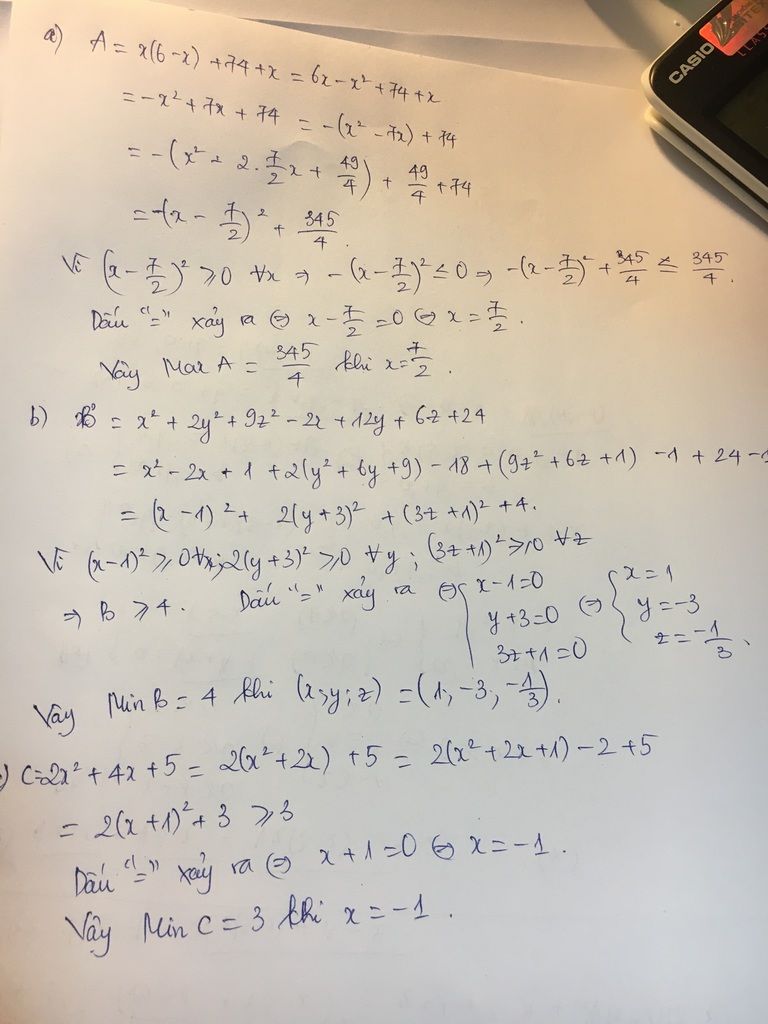 a) A = x(6-x) + 74 + x = 6x - x² + 74 + x
= -x² + 7x + 74 = -(x² - 7x) + 74
= -(x² - 2.7/2x + 49/4) + 49/4 + 74
= -(x - 7/2)² + 345/4.
Vì (x - 7/2)² ⩾ 0 ∀x ⇒ -(x - 7/2)² ≤ 0 ⇒ -(x - 7/2)² + 345/4 ≤ 345/4.
Dấu "=" xảy ra ⇔ x - 7/2 = 0 ⇔ x = 7/2.
Vậy Max A = 345/4 khi x = 7/2.
b) B = x² + 2y² + 9z² - 2x + 12y + 6z + 24
= x² - 2x + 1 + 2(y² + 6y + 9) - 18 + (9z² + 6z + 1) - 1 + 24 - 1
= (x - 1)² + 2(y + 3)² + (3z + 1)² + 4.
Vì (x-1)² ⩾ 0 ∀x; 2(y+3)² ⩾ 0 ∀y; (3z+1)² ⩾ 0 ∀z
⇒ B ⩾ 4. Dấu "=" xảy ra ⇔ { x - 1 = 0 y + 3 = 0 3z + 1 = 0 ⇔ { x = 1 y = -3 z = -1/3.
Vậy Min B = 4 khi (x; y; z) = (1; -3; -1/3).
) C = 2x² + 4x + 5 = 2(x² + 2x) + 5 = 2(x² + 2x + 1) - 2 + 5
= 2(x + 1)² + 3 ⩾ 3
Dấu "=" xảy ra ⇔ x + 1 = 0 ⇔ x = -1.
Vậy Min C = 3 khi x = -1.
CASIO